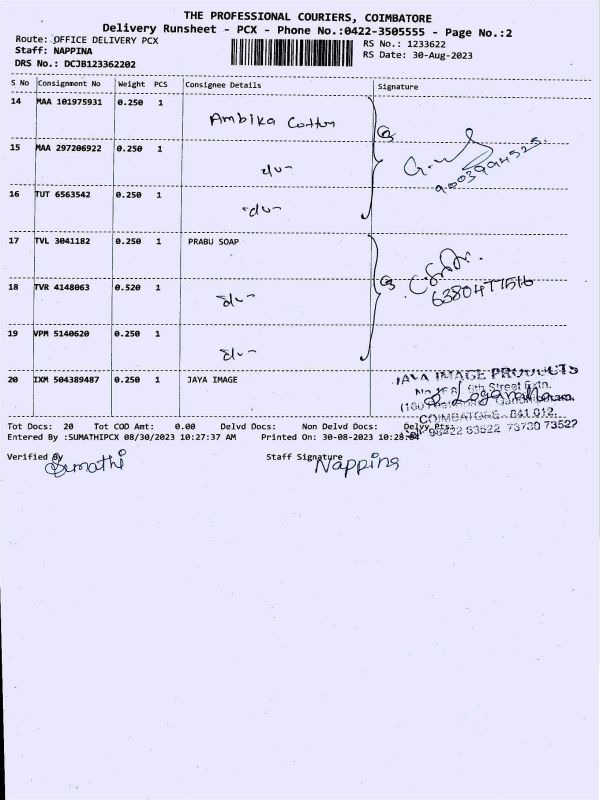 THE PROFESSIONAL COURIERS, COIMBATORE
Delivery Runsheet - PCX - Phone No.:0422-3505555 - Page No.:2
Route: OFFICE DELIVERY PCX
Staff: NAPPINA
DRS No.: DCJB123362202
RS No.: 1233622
RS Date: 30-Aug-2023
S No Consignment No Weight PCS Consignee Details Signature
14 MAA 101975931 0.250 1 Ambika Cotton
15 MAA 297206922 0.250 1
9003994525
16 TUT 6563542 0.250 1
17 TVL 3041182 0.250 1 PRABU SOAP
18 TVR 4148063 0.520 1
19 VPM 5140620 0.250 1
20 IXM 504389487 0.250 1 JAYA IMAGE
JAYA IMAGE PRODUCTS
6th Street Extn.
Loganatha
COIMBATORE - 641 012.
63522 73730 73527
Tot Docs: 20 Tot COD Amt: 0.00 Delvd Docs: Non Delvd Docs: Delvy Pts:
Entered By :SUMATHIPCX 08/30/2023 10:27:37 AM Printed On: 30-08-2023
Verified By Sumathi
Staff Signature Nappina